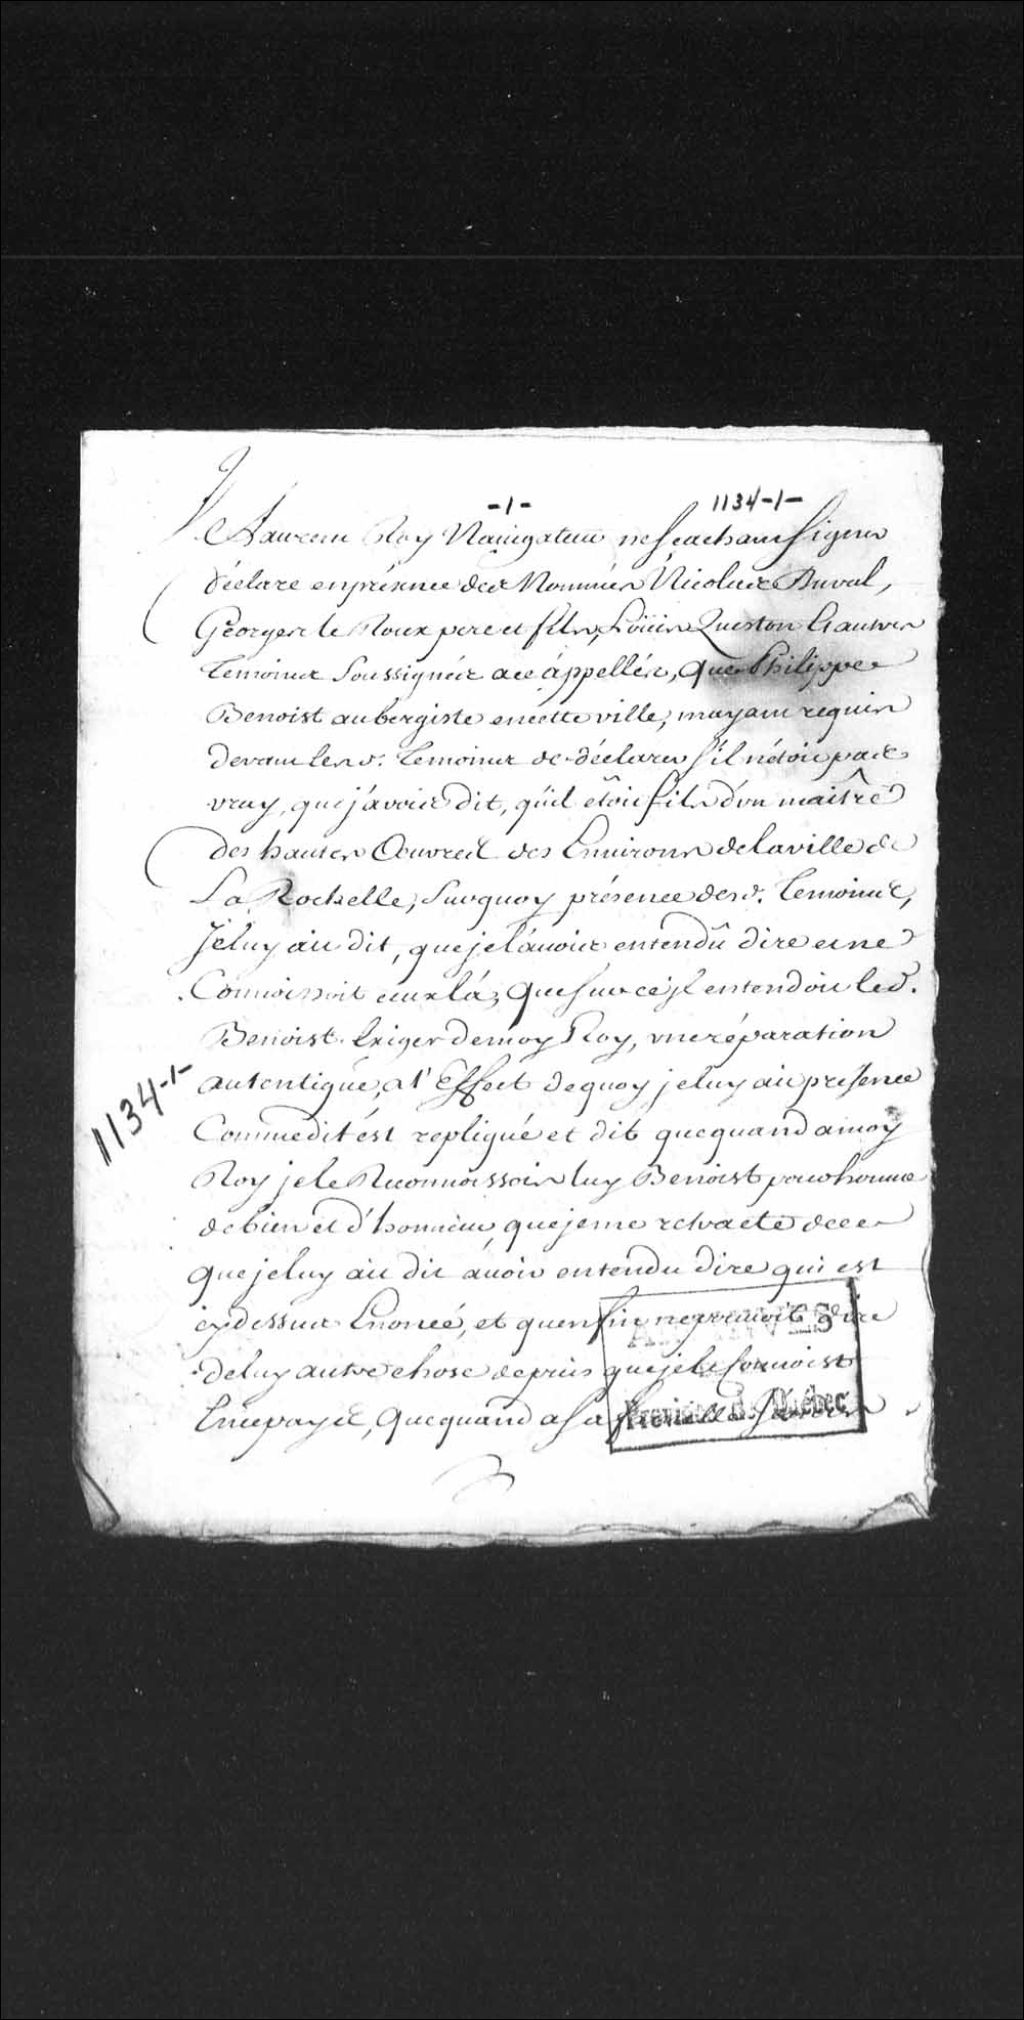 -1- 1134-1-
Je Laurent Roy Navigateur ne scachant signer
déclare en présence des Nommés Nicolas Duval,
Georges le Roux pere et fils, Loüis Queston
Temoins Soussignés a ce áppellés, que Philippe
Benoist aubergiste en cette ville, mayant requis
devant les d. temoins de déclarer s'il n'étoit pas
vray, que j'avois dit, qu'il étoit fils d'un maître
des hautes Oeuvres des Environs de la ville de
La Rochelle, Surquoy présence des d. Temoins,
Je luy ait dit, que je l'auois entendû dire et ne
Connoissoit eux lá; Que sur ce jl entendoit led.
Benoist Exiger de moy Roy, vne réparation
autentique, a l'Effect de quoy je luy ait presence
Comme dit ést repliqué et dit que quand a moy
Roy je le Reconnoissois luy Benoist pour homme
de bien et d'honneur, que je me retracte de ce
que je luy ait dit auoir entendu dire qui est
cy dessus Enoncé, et qu'enfin ne pouuoit dire
de luy autre chose depuis que je le Connoist
En ce pays, Que quand a sa
1134-1-
ARCHIVES
Province de Québec